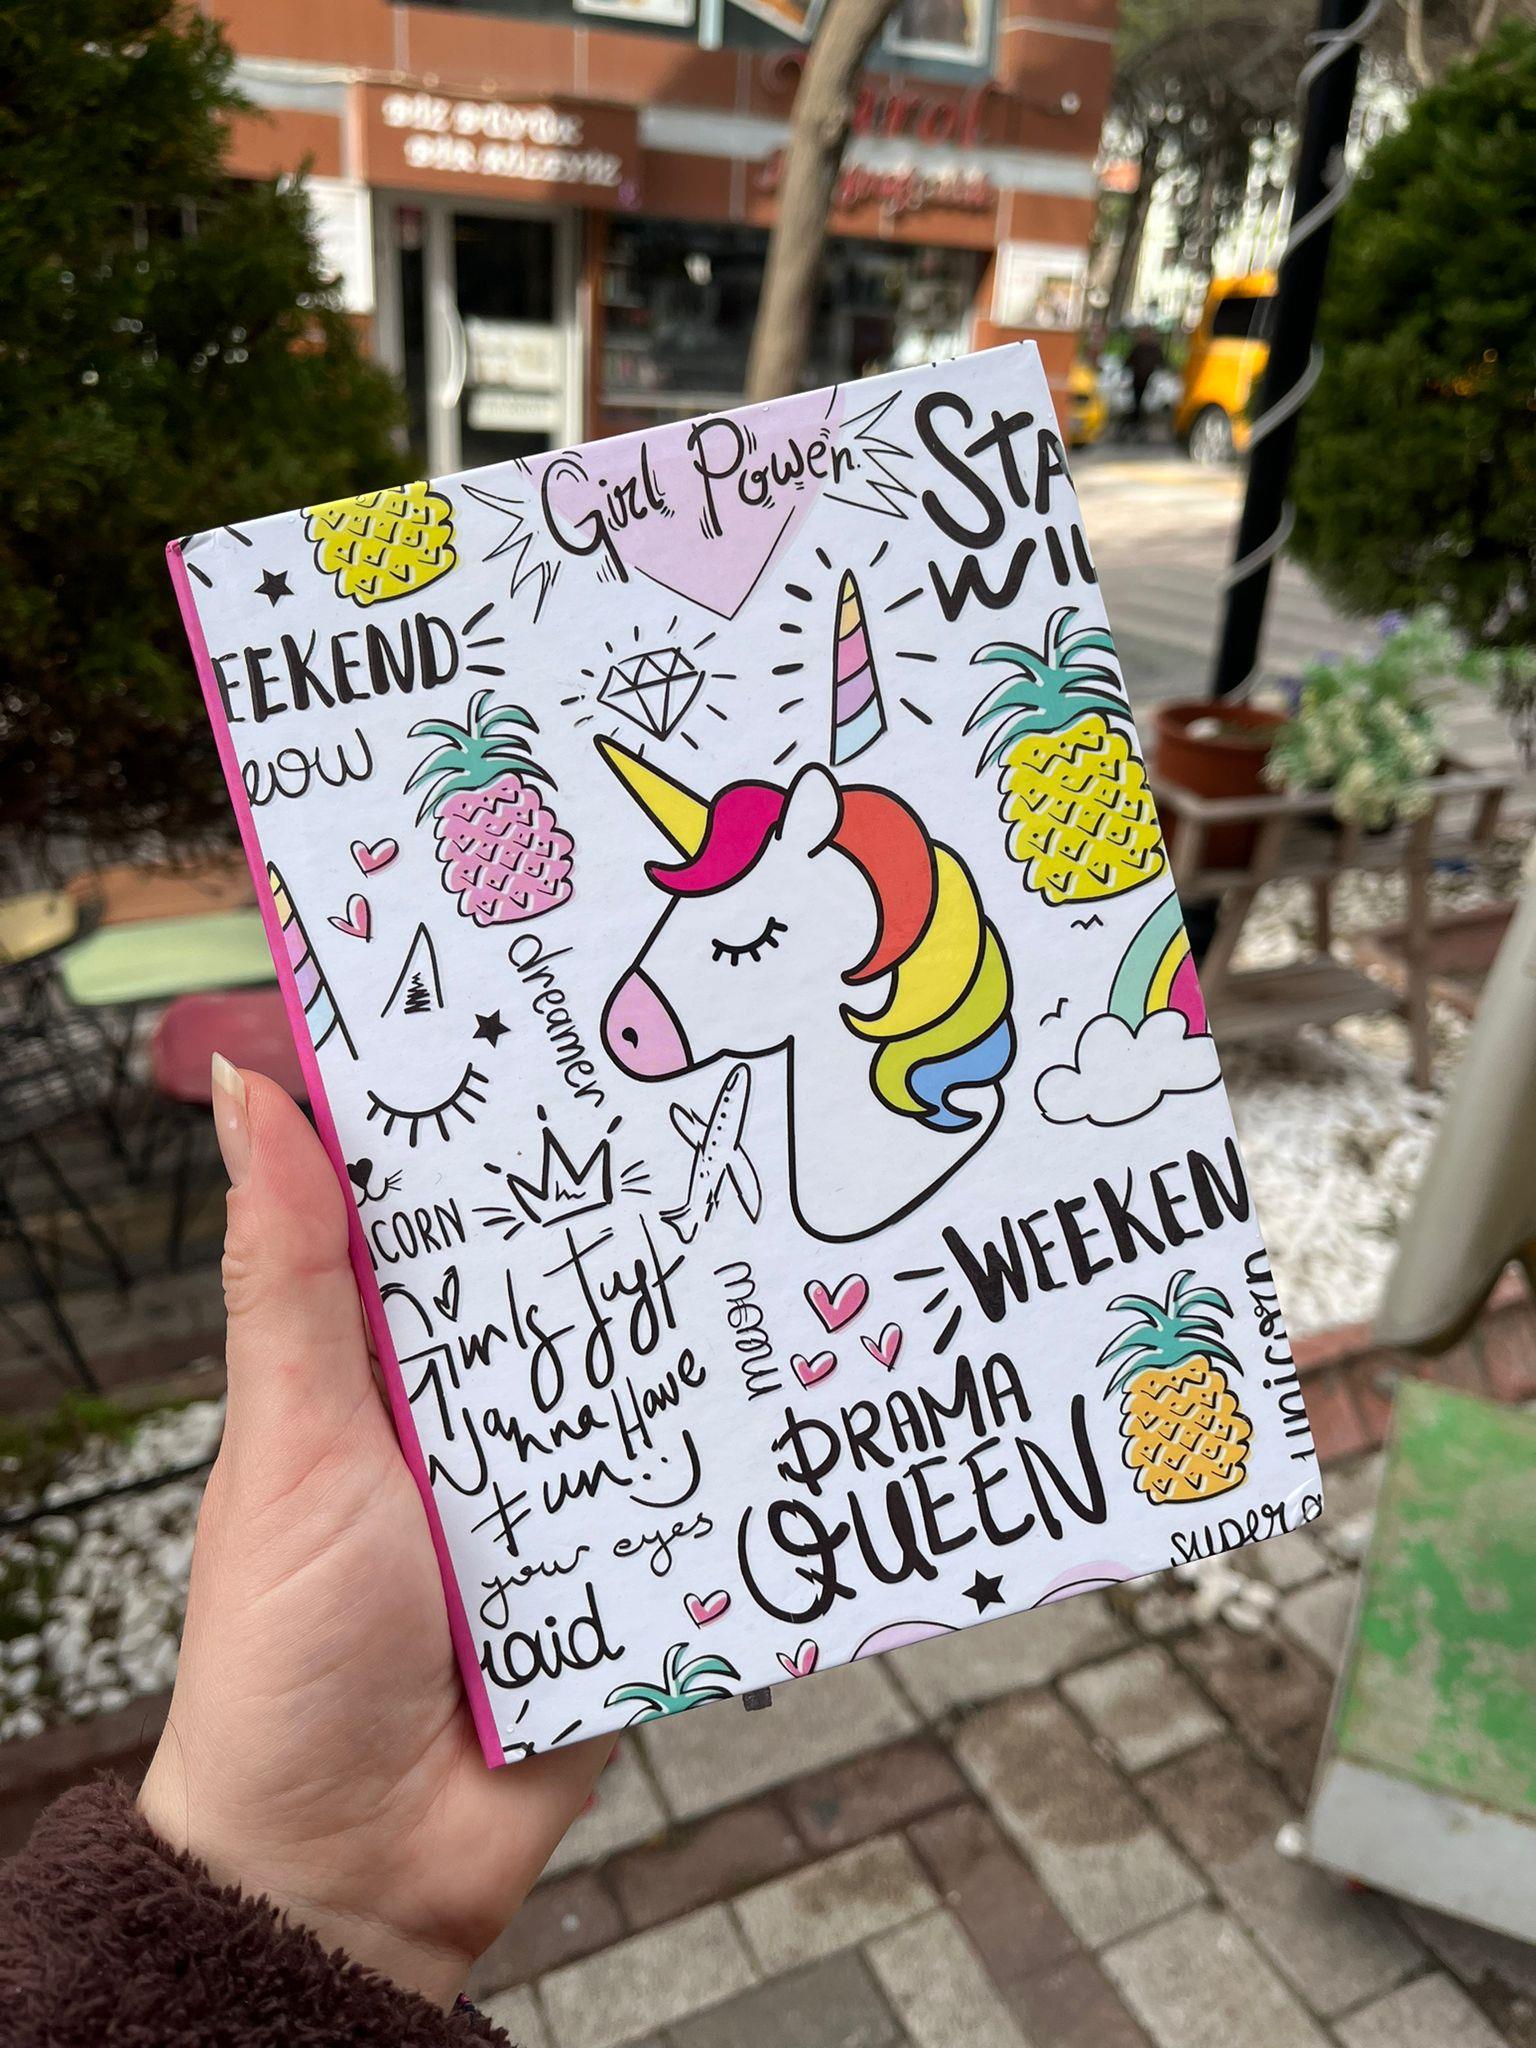 Girl Power
STA
WIL
EEKEND
eow
dreamer
CORN
WEEKEN
Girls Just
Wanna Have
Fun
meow
DRAMA
QUEEN
unicorn
your eyes
super
aid